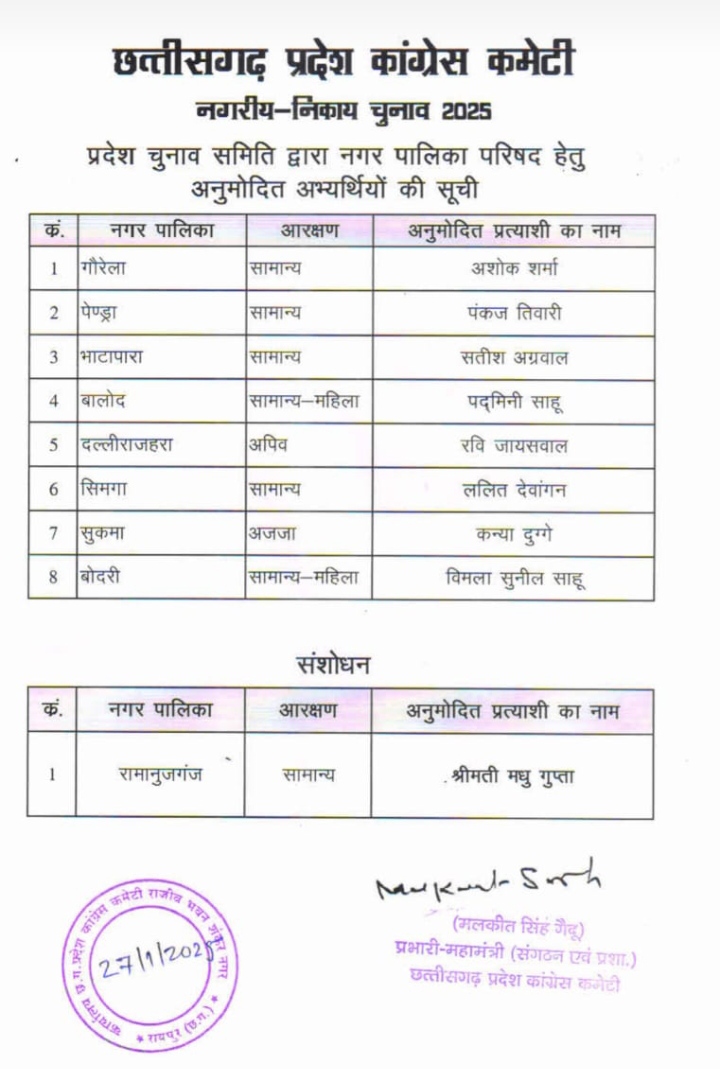 छत्तीसगढ़ प्रदेश कांग्रेस कमेटी
नगरीय–निकाय चुनाव 2025
प्रदेश चुनाव समिति द्वारा नगर पालिका परिषद हेतु
अनुमोदित अभ्यर्थियों की सूची
कं. नगर पालिका आरक्षण अनुमोदित प्रत्याशी का नाम
1 गौरेला सामान्य अशोक शर्मा
2 पेण्ड्रा सामान्य पंकज तिवारी
3 भाटापारा सामान्य सतीश अग्रवाल
4 बालोद सामान्य–महिला पद्मिनी साहू
5 दल्लीराजहरा अपिव रवि जायसवाल
6 सिमगा सामान्य ललित देवांगन
7 सुकमा अजजा कन्या दुग्गे
8 बोदरी सामान्य–महिला विमला सुनील साहू
संशोधन
कं. नगर पालिका आरक्षण अनुमोदित प्रत्याशी का नाम
1 रामानुजगंज सामान्य श्रीमती मधु गुप्ता
(मलकीत सिंह गैदू)
प्रभारी-महामंत्री (संगठन एवं प्रशा.)
छत्तीसगढ़ प्रदेश कांग्रेस कमेटी
कार्यालय छ.ग.प्रदेश कांग्रेस कमेटी राजीव भवन शंकर नगर
27/1/2025
* रायपुर (छ.ग.) *